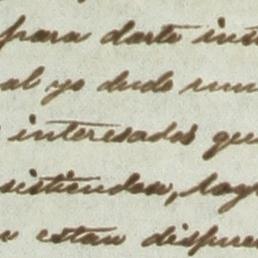 para darte inst
al yo dude mu
interesados que
sistiendon, lag
estan dispue